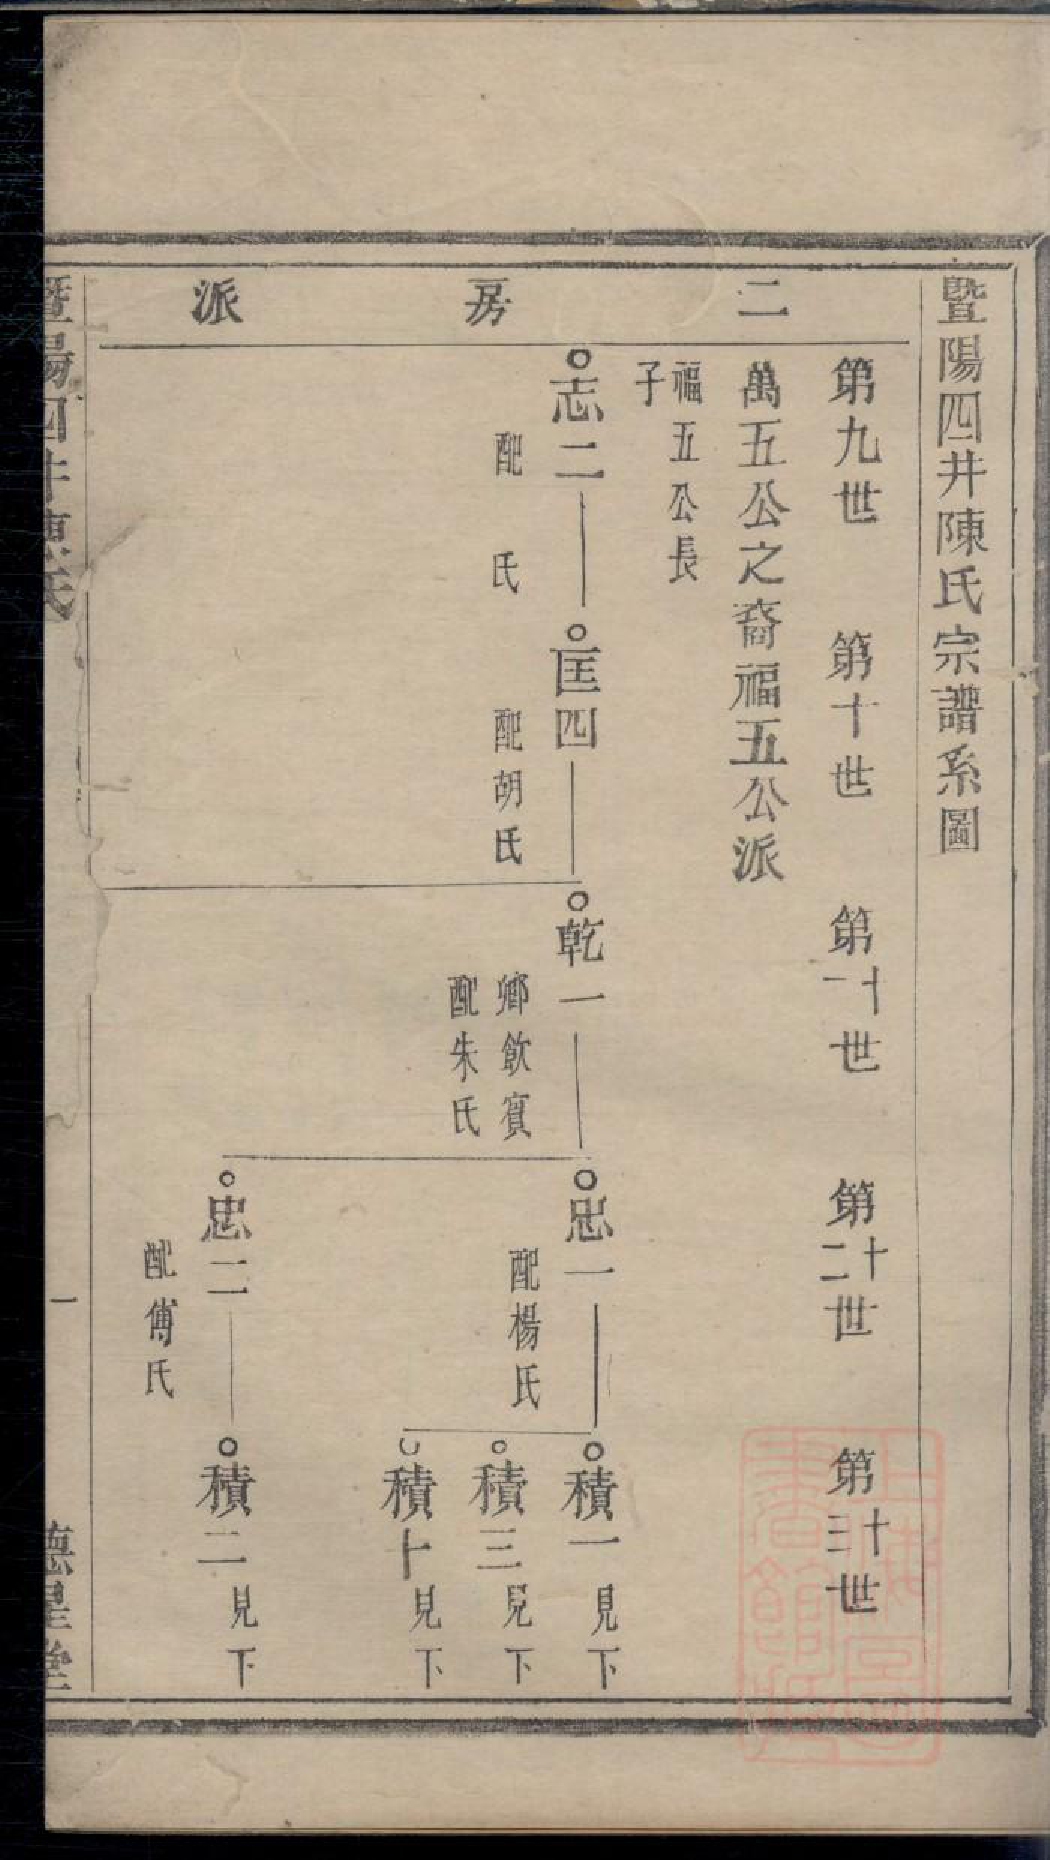 暨陽四井陳氏宗譜系圖
二房派
第九世
第十世
第十一世
第十二世
第十三世
萬五公之裔福五公派
福五公長
子
志二
配 氏
匡四
配胡氏
乾一
鄉飲賓
配朱氏
忠一
配楊氏
忠二
配傅氏
積一見下
積三見下
積十見下
積二見下
暨陽四井陳氏
一
德星堂
上海圖書館藏